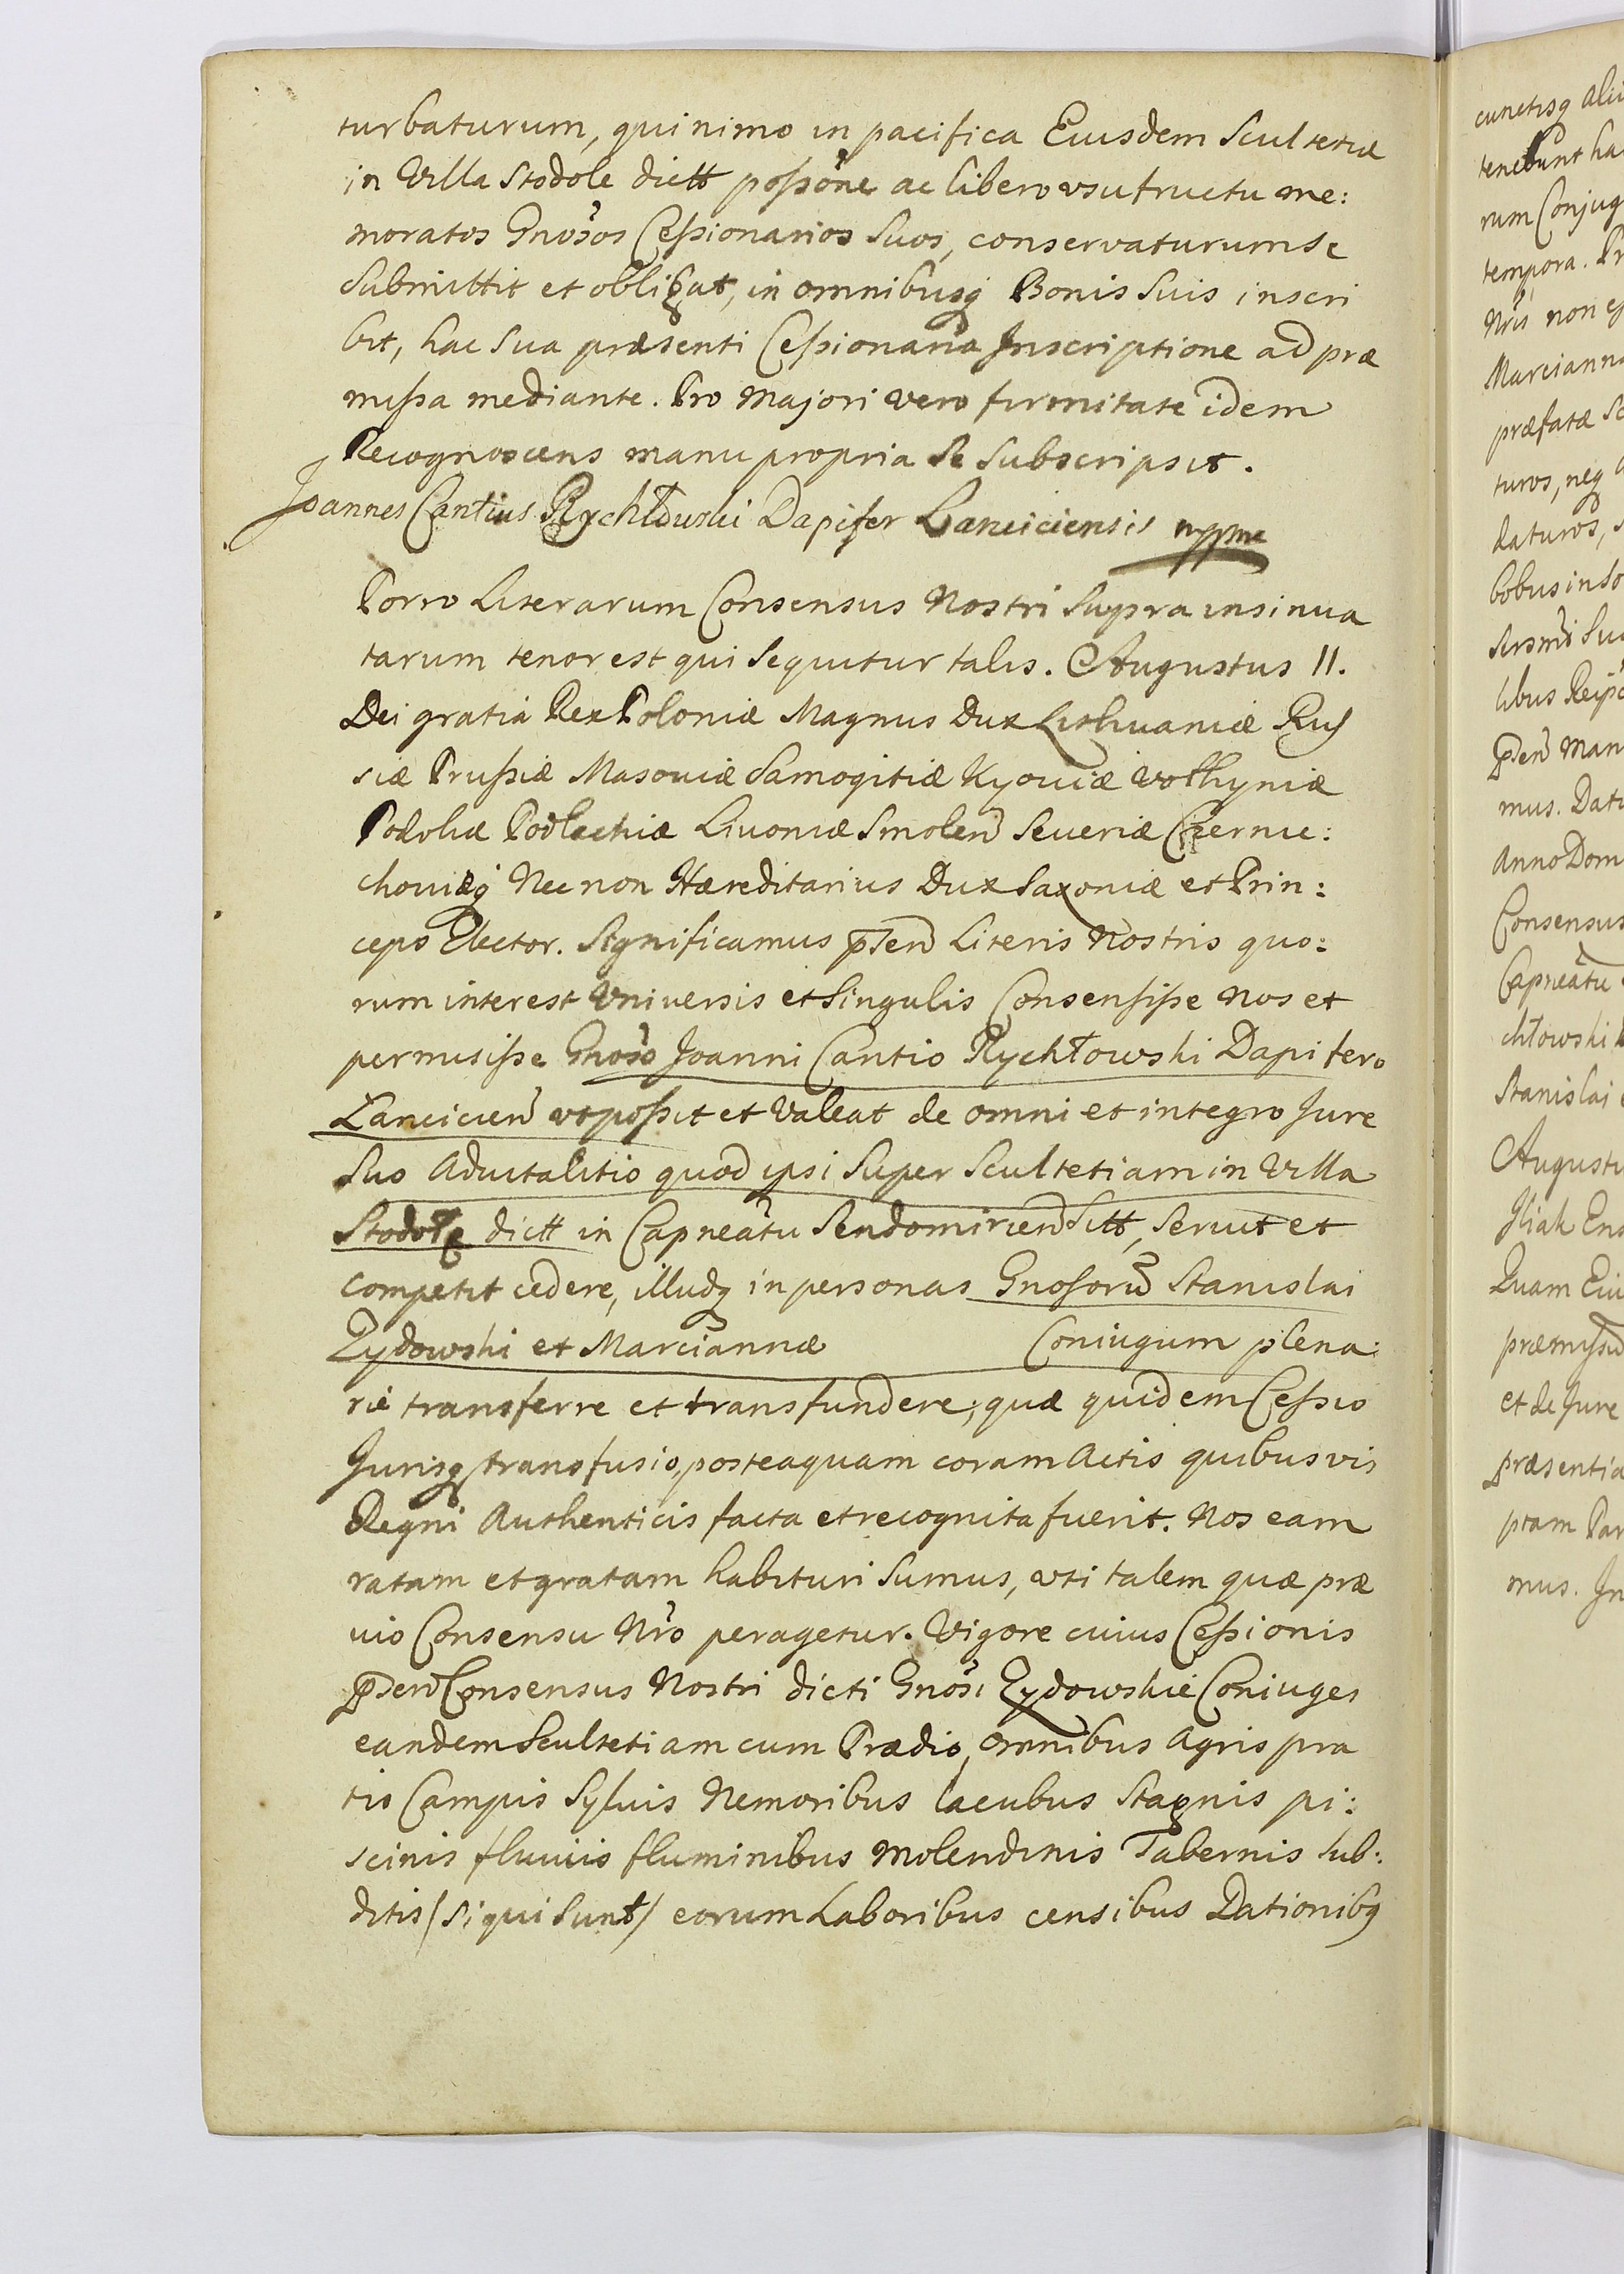 turbaturum, quinimo in pacifica Eiusdem Scultetiæ
in Villa Stodole dictt possõne ac libero usufructu me:
moratos Gnosos Cessionarios Suos, conservaturum se
Submittit et obligat, in omnibusq Bonis Suis inscri
bit, hac Sua præsenti Cessionaria Inscriptione ad præ
missa mediante. Pro Majori vero firmitate idem
Recognoscens manu propria Se Subscripsit.
Joannes Cantius Rychłowski Dapifer Lanciciensis mppria
Porro Literarum Consensus Nostri Supra insinua
tarum tenor est qui Sequitur talis. Augustus II.
Dei gratia Rex Poloniæ Magnus Dux Lithuaniæ Rus
siæ Prussiæ Masoviæ Samogitiæ Kyoviæ Volhyniæ
Podoliæ Podlachiæ Livoniæ Smolen Severiæ Czernie:
choviæq Nec non Hæreditarius Dux Saxoniæ et Prin:
ceps Elector. Significamus pñten Literis Nostris quo:
rum interest Universis et Singulis Consensisse Nos et
permisisse Gnoso Joanni Cantio Rychłowski Dapifero
Lancicien ut possit et Valeat de omni et integro Jure
Suo Advitalitio quod ipsi Super Scultetiam in Villa
Stodole dictt in Capneatu Sendomirien Sitt, Servit et
competit cedere, illudq in personas Gnosorũ Stanislai
Zydowski et Mariannæ Coniugum plena:
rie transferre et transfundere, quæ quidem Cessio
Jurisq transfusio, posteaquam coram Actis quibusvis
Regni Authenticis facta et recognita fuerit. Nos eam
ratam et gratam habituri Sumus, uti talem quæ præ
vio Consensu Nro peragetur. Vigore cuius Cessionis
pñten Consensus Nostri dicti Gnosi Zydowskie Coniuges
eandem Scultetiam cum Prædio, omnibus Agris pra
tis Campis Sylvis Nemoribus lacubus Stagnis pi:
scinis fluviis fluminibus Molendinis Tabernis Sub:
ditis /Si qui Sunt/ eorum Laboribus censibus Dationibq
cunctisq
tenebunt
rum
tempora.
Nris non
præfatæ
turos, neq
daturos,
mus.
Anno Dom
Consensus
Capneatu
chłowski
Stanislai
Augustu
Quam
et de Jure
præsentia
ptam
mus. In